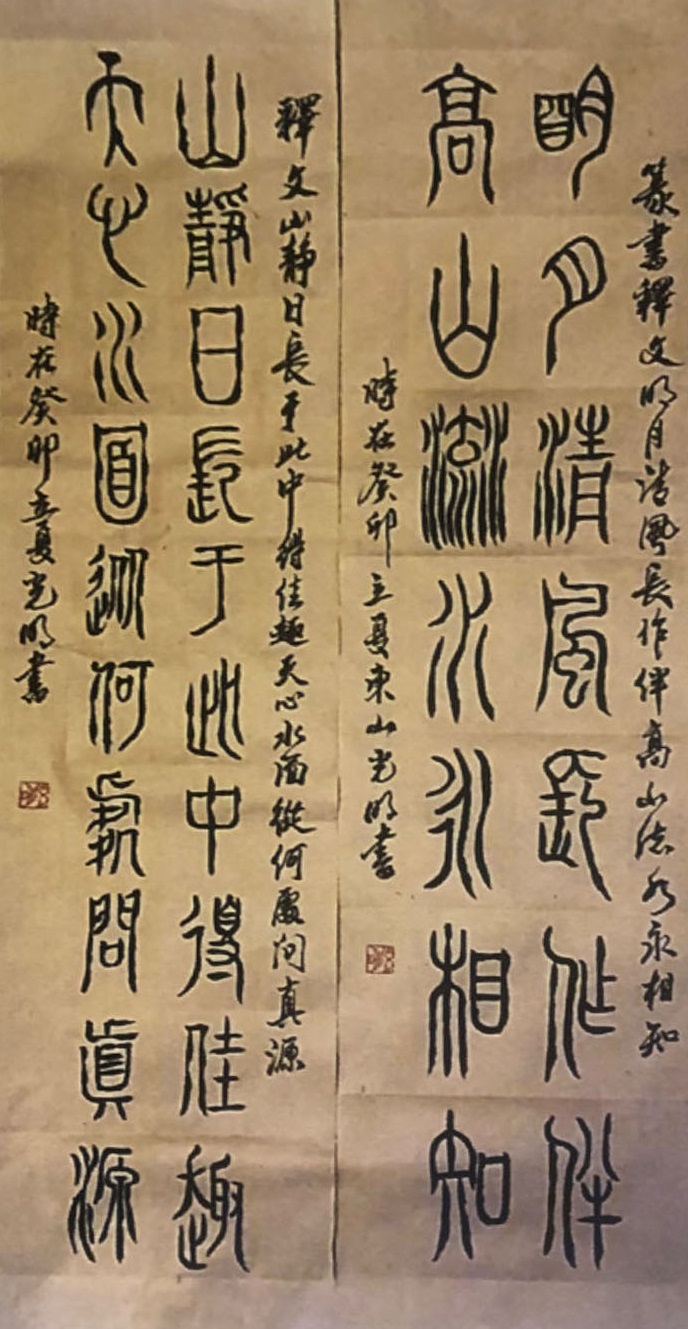 篆書釋文明月清風長作伴高山流水永相知
明月清風長作伴
高山流水永相知
時在癸卯立夏東山光明書
釋文山静日長于此中得佳趣天心水面從何處問真源
山靜日長于此中得佳趣
天心水面從何處問眞源
時在癸卯立夏光明書